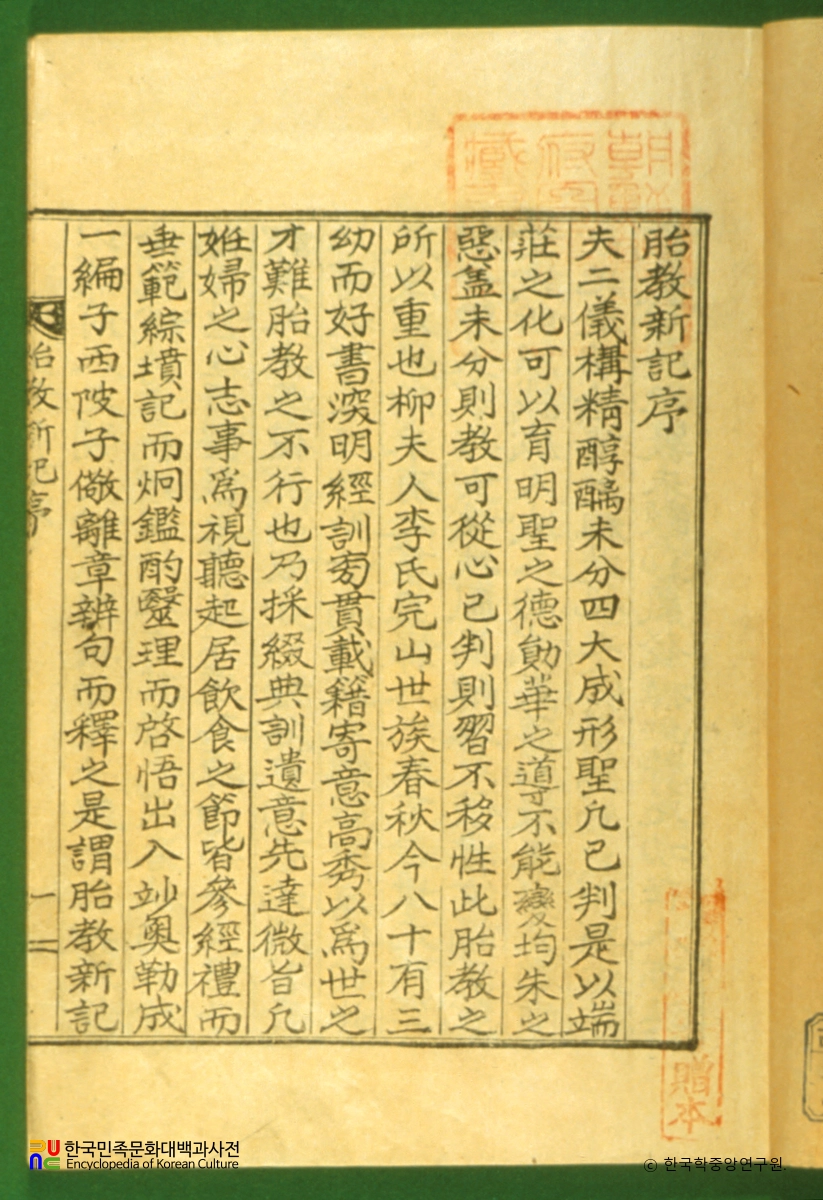 胎教新記序
夫二儀構精醇醨未分四大成形聖凡已判是以端
莊之化可以育明聖之德勛華之導不能變均朱之
惡盖未分則教可從心已判則習不移性此胎教之
所以重也柳夫人李氏完山世族春秋今八十有三
幼而好書深明經訓旁貫載籍寄意高秀以爲世之
才難胎教之不行也乃採綴典訓遺意先達微旨凡
姙婦之心志事爲視聽起居飮食之節皆參經禮而
垂範綜墳記而炯鑑酌毉理而啓悟出入竗奧勒成
一編子西陂子儆離章辨句而釋之是謂胎教新記
胎教新記序
一
贈本
한국민족문화대백과사전
Encyclopedia of Korean Culture
ⓒ 한국학중앙연구원.